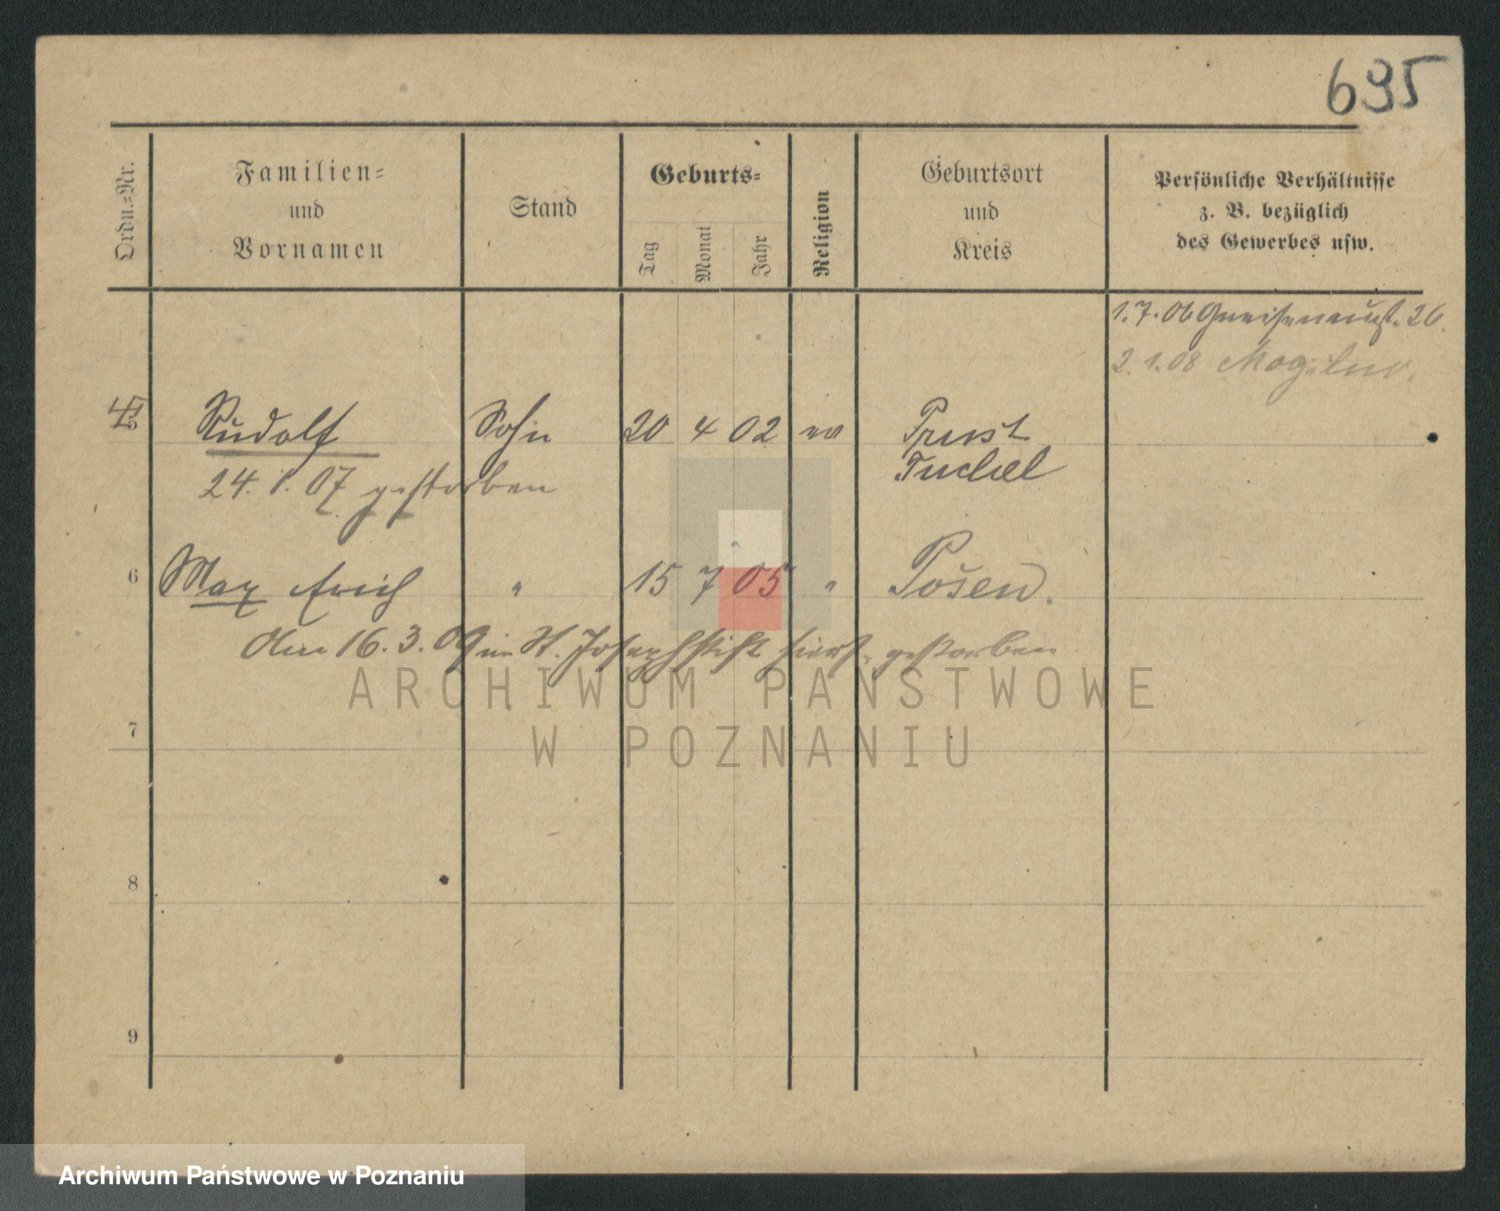 695
Ordn.=Nr.
Familien=
und
Vornamen
Stand
Geburts=
Tag
Monat
Jahr
Religion
Geburtsort
und
Kreis
Persönliche Verhältnisse
z. B. bezüglich
des Gewerbes usw.
1.7.06 Gneisenaustr. 26.
2.1.08 Mogilno.
5 Rudolf Sohn 20 4 02 ev Prust
Tuchel
24. 1. 07 gestorben
6 Max Erich " 15 7 05 " Posen.
Am 16. 3. 09 im St. Josephstift hiers. gestorben
ARCHIWUM PAŃSTWOWE
W POZNANIU
7
8
9
Archiwum Państwowe w Poznaniu